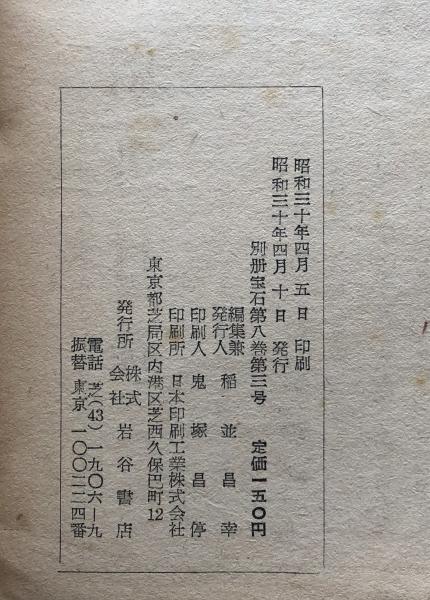 昭和三十年四月五日 印刷
昭和三十年四月十日 発行
別册宝石第八巻第三号 定価一五〇円
編集兼発行人 稲並昌幸
印刷人 鬼塚昌停
印刷所 日本印刷工業株式会社
東京都芝局区内港区芝西久保巴町12
発行所 株式会社 岩谷書店
電話 芝(43)一九〇六―九
振替 東京 一〇〇三二四番